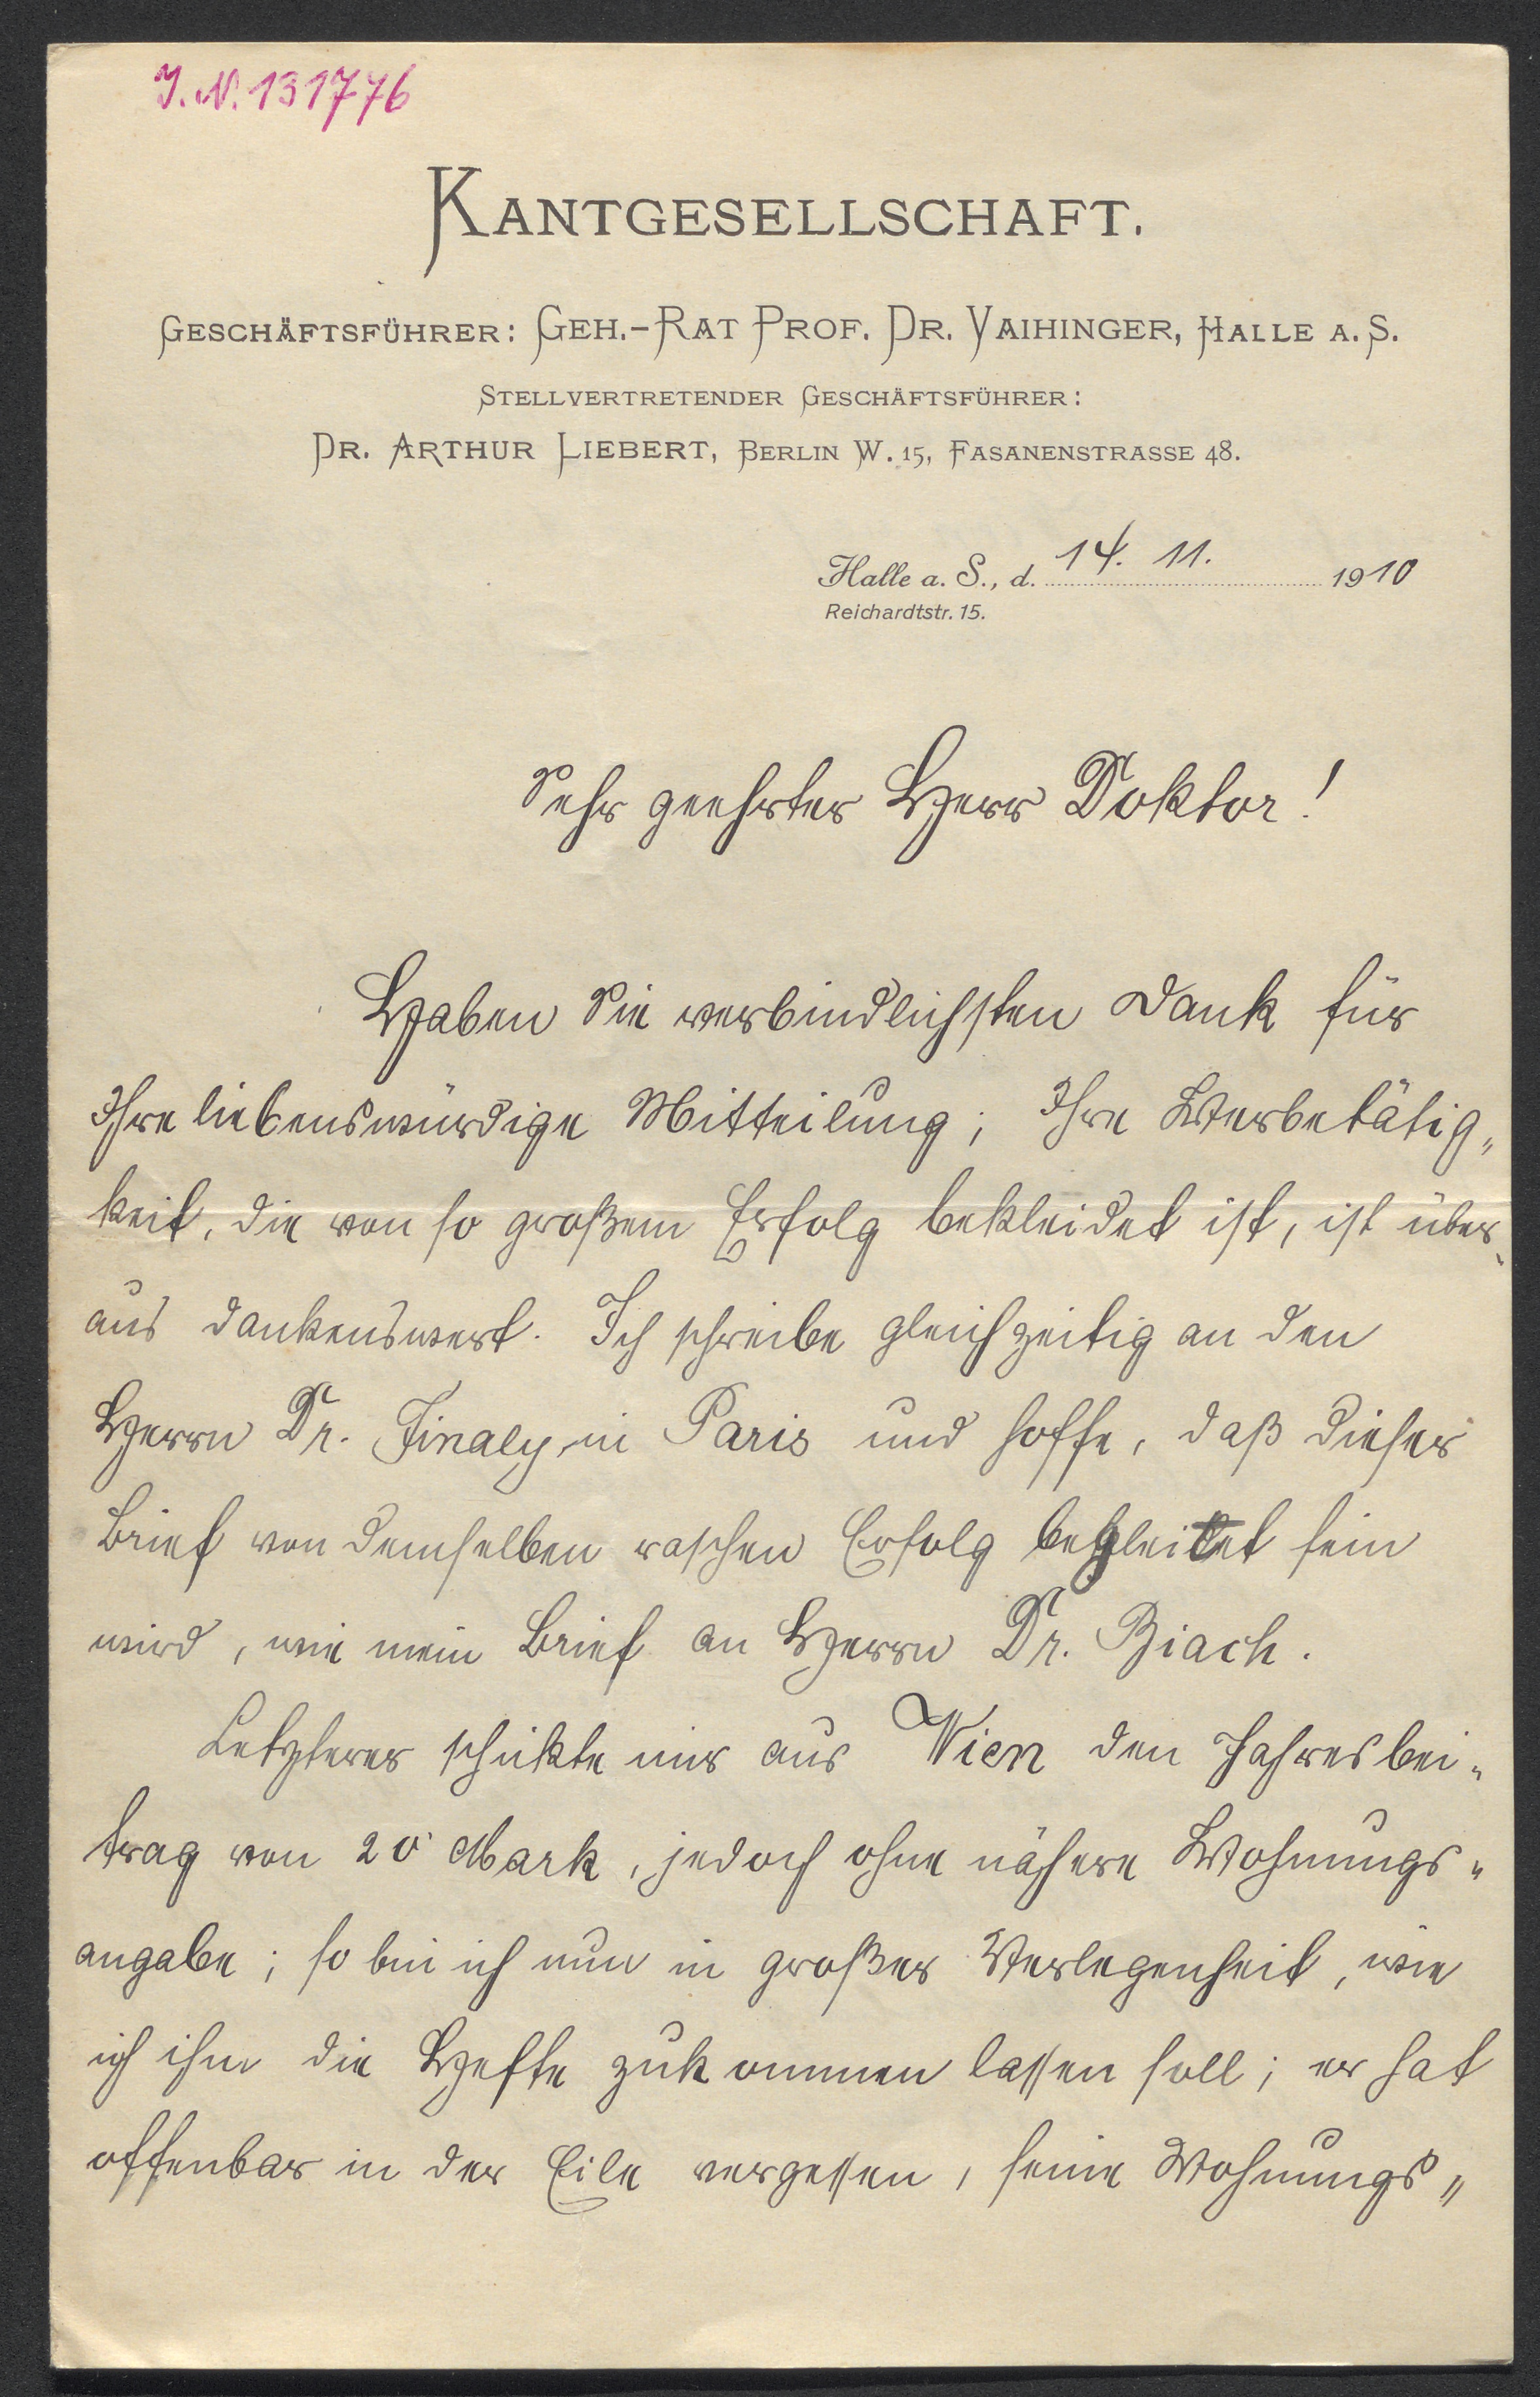 J. N. 131776
KANTGESELLSCHAFT.
GESCHÄFTSFÜHRER: GEH.-RAT PROF. DR. VAIHINGER, HALLE A. S.
STELLVERTRETENDER GESCHÄFTSFÜHRER:
DR. ARTHUR LIEBERT, BERLIN W. 15, FASANENSTRASSE 48.
Halle a. S., d. 14. 11. 1910
Reichardtstr. 15.
Sehr geehrter Herr Doktor!
Haben Sie verbindlichsten Dank für
Ihre liebenswürdige Mitteilung; Ihre Werbetätig„
keit, die von so großem Erfolg bekleidet ist, ist über„
aus dankenswert. Ich schreibe gleichzeitig an den
Herrn Dr. Finaly in Paris und hoffe, daß dieser
Brief von demselben raschen Erfolg begleitet sein
wird, wie mein Brief an Herrn Dr. Biach.
Letzterer schikte mir aus Wien den Jahresbei„
trag von 20 Mark, jedoch ohne nähere Wohnungs„
angabe; so bin ich nun in großer Verlegenheit, wie
ich ihm die Hefte zukommen lassen soll; er hat
offenbar in der Eile vergessen, seine Wohnungs„